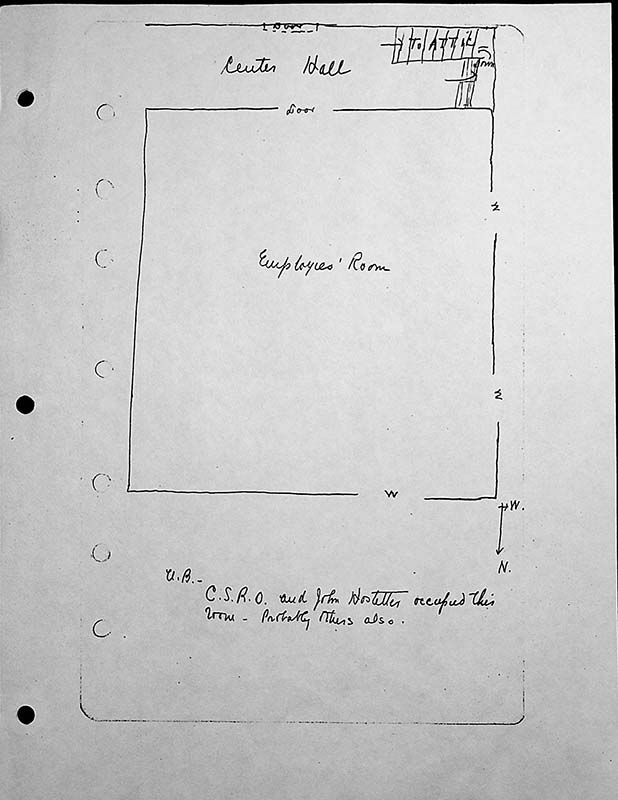 Door
TO ATTIC
Center Hall
Down
Door
W
Employees' Room
W
W
W.
N.
N.B.-
C.S.R.O. and John Hostetter occupied this
room - Probably others also.